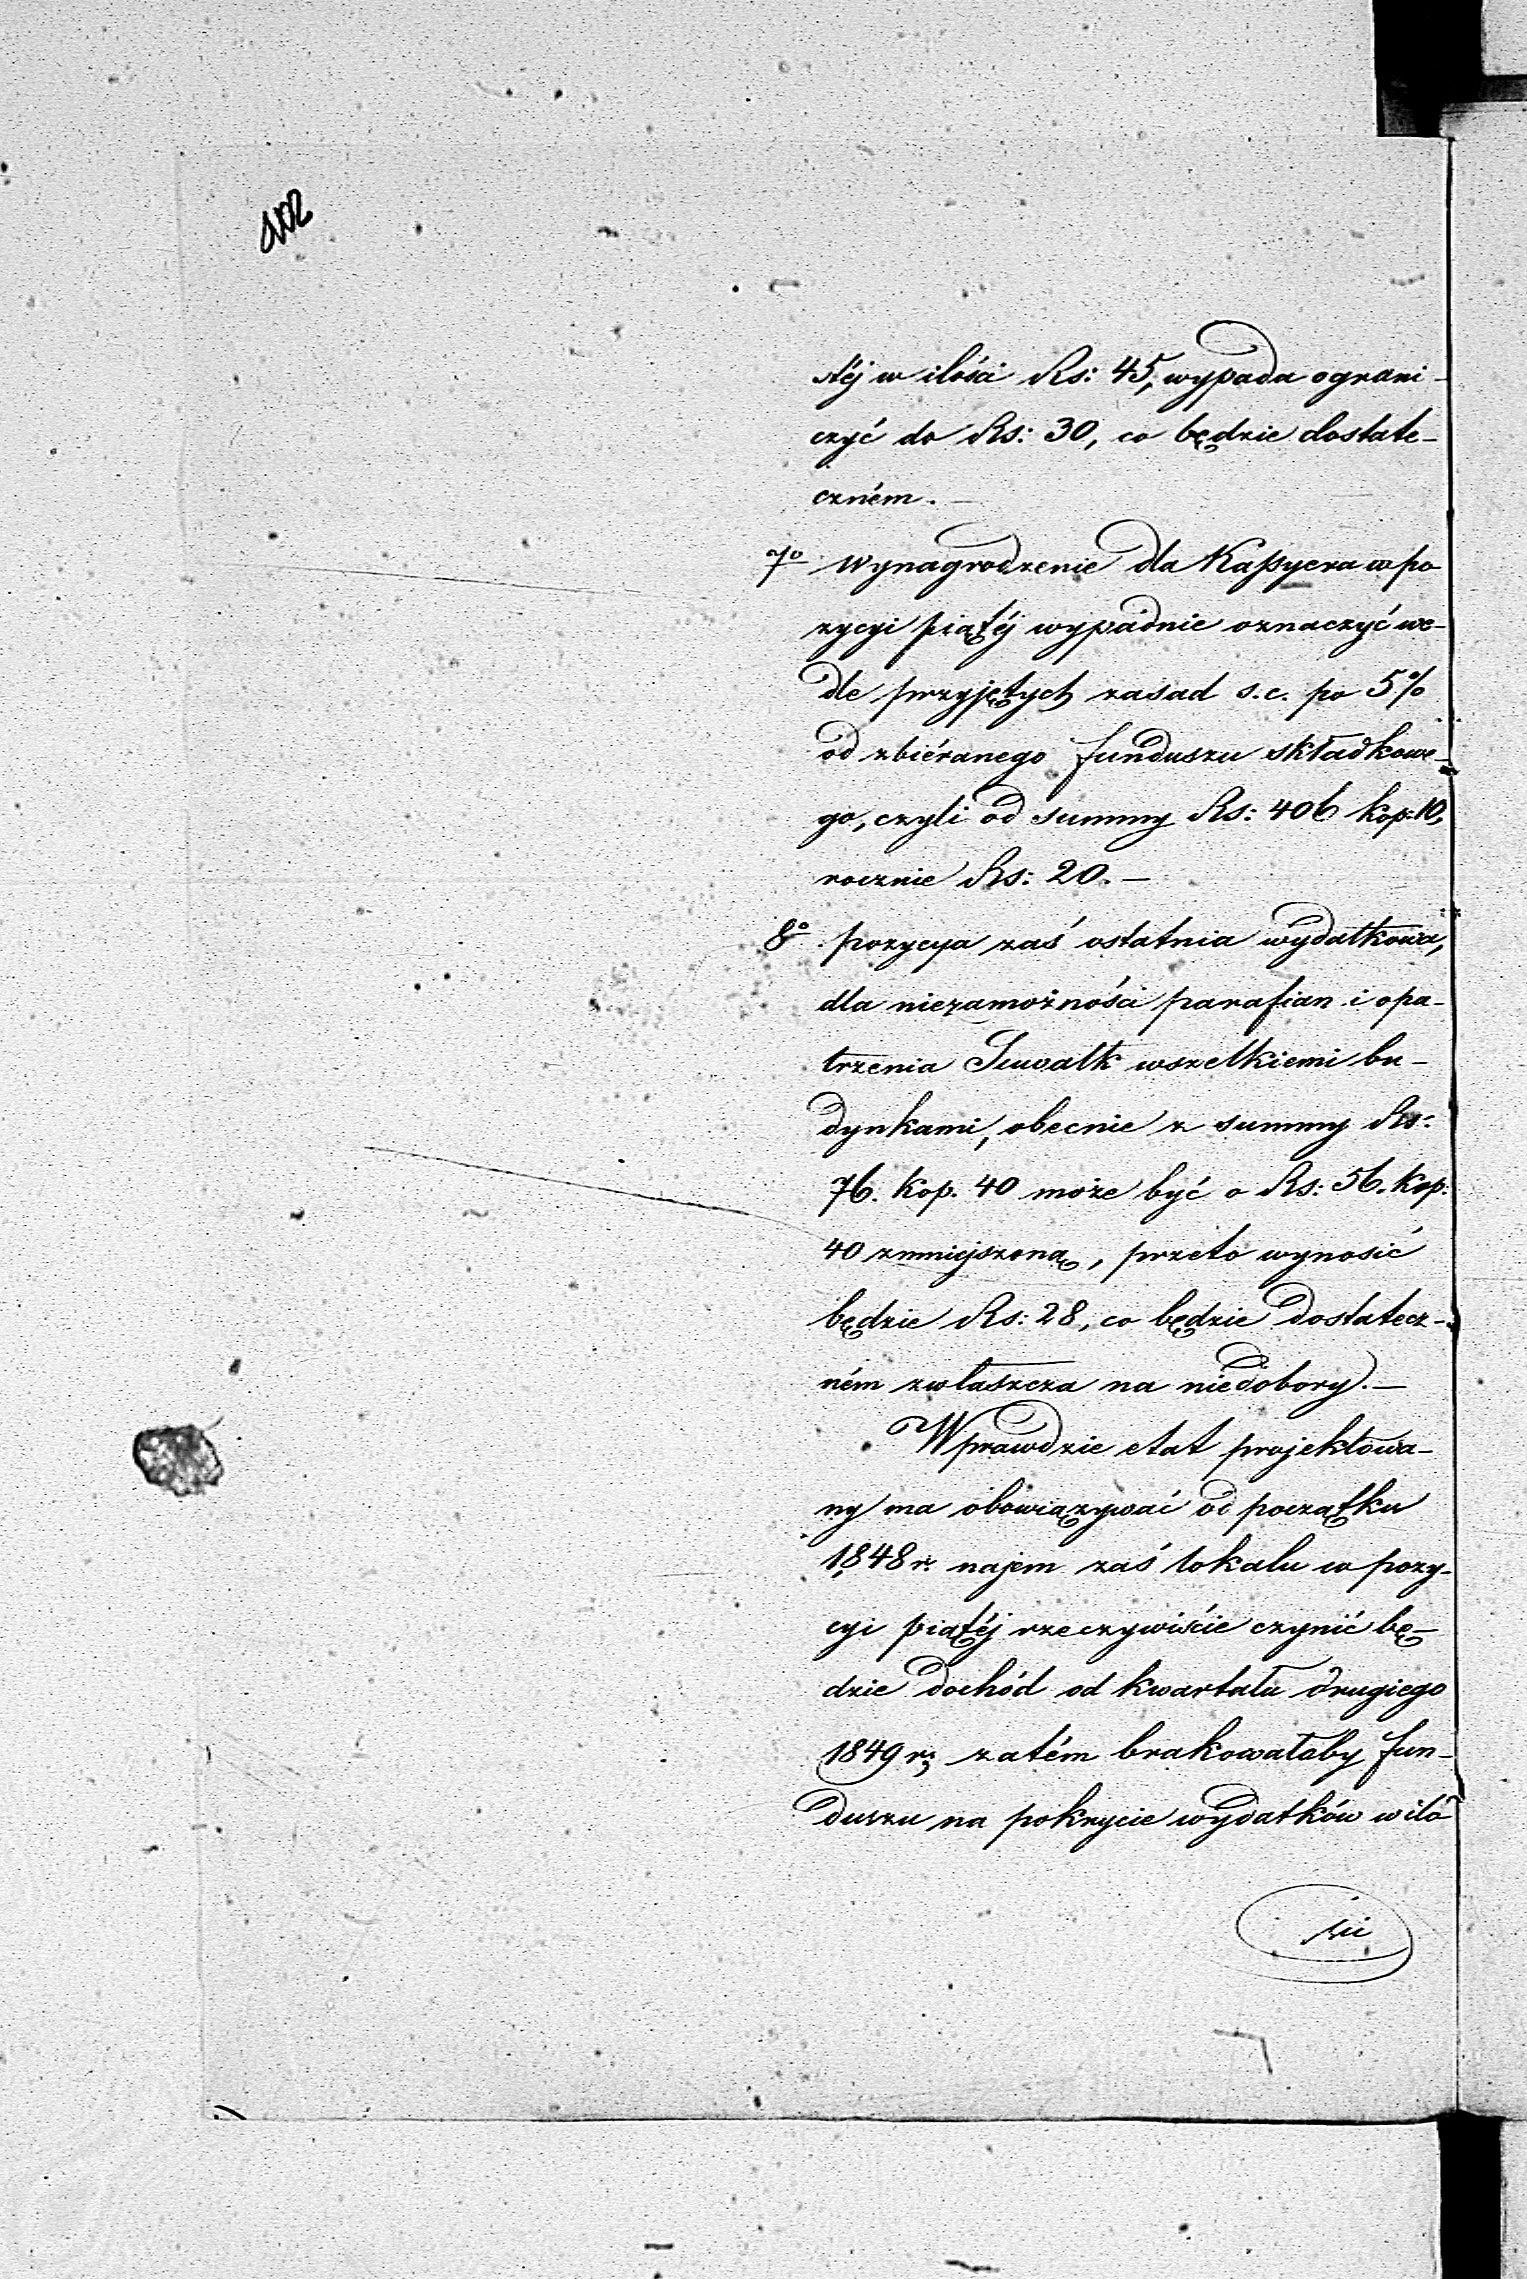 102
stéj w ilości Rs: 45, wypada ograni-
czyć do Rs: 30, co będzie dostate-
czném. —
7o Wynagrodzenie dla Kassyera w po
zycyi piątéj wypadnie oznaczyć we-
dle przyjętych zasad s.c. po 5%
od zbiéranego funduszu składkowe-
go, czyli od summy Rs: 406 kop: 10,
rocznie Rs: 20. —
8o pozycya zaś ostatnia wydatkowa,
dla niezamożności parafian i opa-
trzenia Suwałk wszelkiemi bu-
dynkami, obecnie z summy Rs:
76. kop. 40 może być o Rs: 56. kop:
40 zmniejszoną, przeto wynosić
będzie Rs: 28, co będzie dostatecz-
ném zwłaszcza na niedobory. —
Wprawdzie etat projektowa-
ny ma obowiązywać od początku
1848 r. najem zaś lokalu w pozy-
cyi piątéj rzeczywiście czynić bę-
dzie dochód od kwartału drugiego
1849 r; zatém brakowałaby fun-
duszu na pokrycie wydatków w ilo
ści